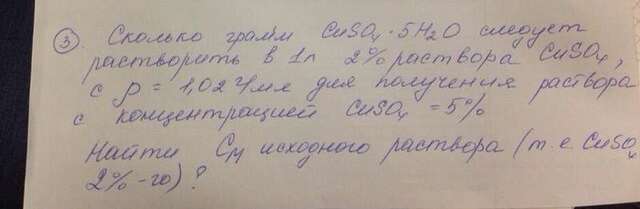 ③ Сколько грамм CuSO₄·5H₂O следует
растворить в 1л 2% раствора CuSO₄,
с ρ = 1,02 г/мл для получения раствора
с концентрацией CuSO₄ = 5%
Найти Cм исходного раствора (т.е. CuSO₄
2%-го)?